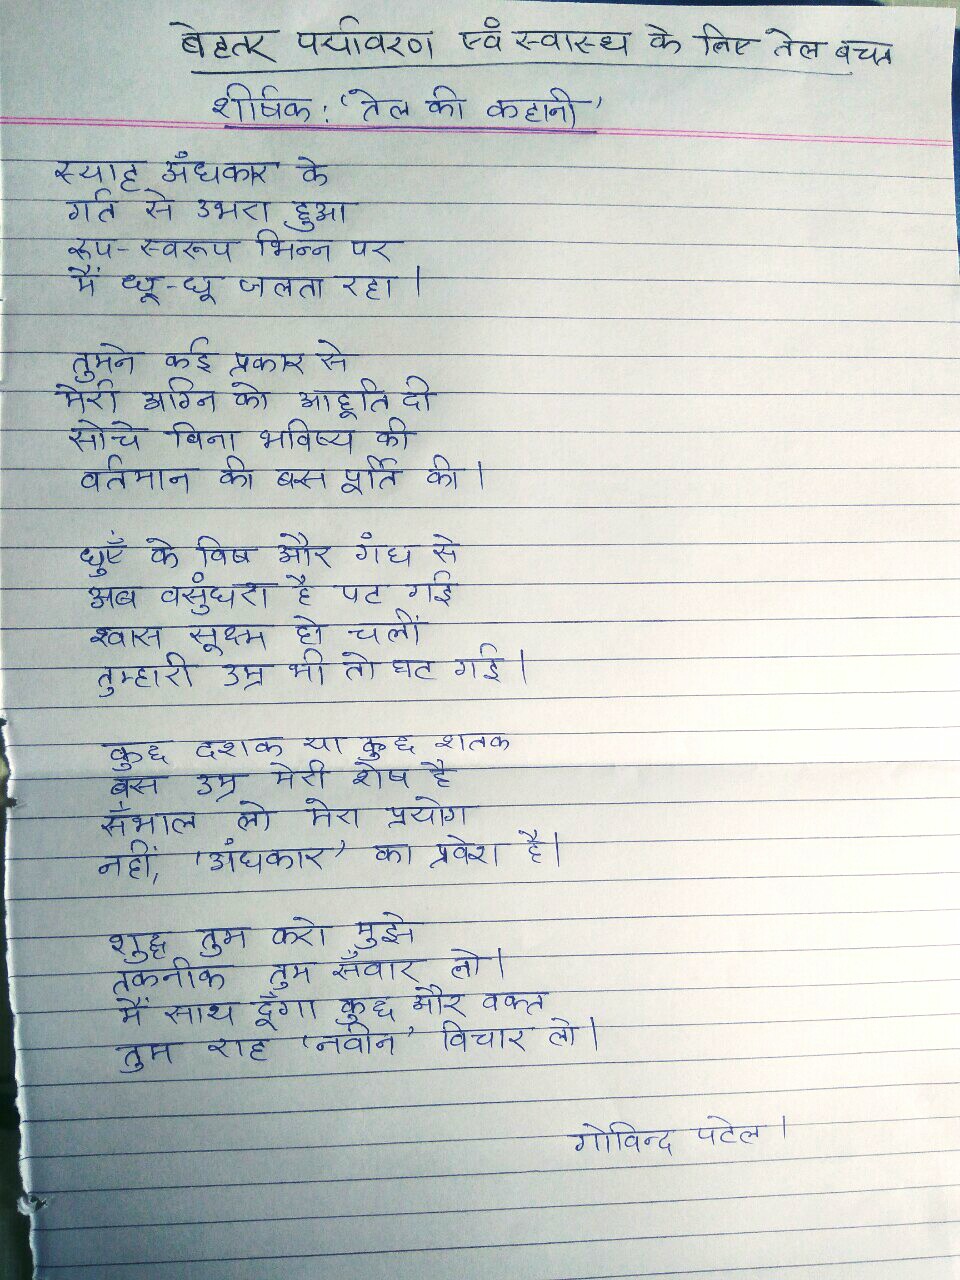 बेहतर पर्यावरण एवं स्वास्थ के लिए तेल बचत
शीर्षक : 'तेल की कहानी'
स्याह अँधकार के
गर्त से उभरा हुआ
रूप-स्वरूप भिन्न पर
मैं धू-धू जलता रहा।
तुमने कई प्रकार से
मेरी अग्नि को आहूति दी
सोचे बिना भविष्य की
वर्तमान की बस पूर्ति की।
धुएँ के विष और गंध से
अब वसुंधरा है पट गई
श्वास सूक्ष्म हो चलीं
तुम्हारी उम्र भी तो घट गई।
कुछ दशक या कुछ शतक
बस उम्र मेरी शेष है
सँभाल लो मेरा प्रयोग
नहीं, 'अंधकार' का प्रवेश है।
शुद्ध तुम करो मुझे
तकनीक तुम सँवार लो।
मैं साथ दूँगा कुछ और वक्त
तुम राह 'नवीन' विचार लो।
गोविन्द पटेल।